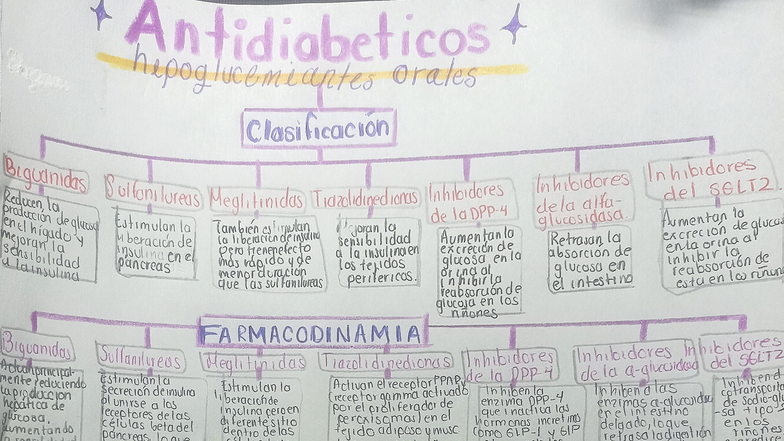 Antidiabeticos
hepoglucemiantes orales
Clasificación
Biguanidas
Reducen la
producción de glucosa
en el hígado y
mejoran la
sensibilidad
a la insulina
Sulfonilureas
Estimulan la
liberación de
insulina en el
páncreas
Meglitinidas
También estimulan
la liberación de insulina
pero tienen efecto
más rápido y de
menor duración
que las sulfonilureas
Tiazolidinedionas
Mejoran la
sensibilidad
a la insulina en
los tejidos
perifericos.
Inhibidores
de la DPP-4
Aumentan la
excreción de
glucosa en la
orina al
inhibir la
reabsorción de
glucosa en los
riñones
Inhibidores
de la alfa-
glucosidasa
Retrasan la
absorción de
glucosa en
el intestino
Inhibidores
del SGLT2
Aumentan la
excreción de glucosa
en la orina al
inhibir la
reabsorción de
esta en los riñones
FARMACODINAMIA
Biguanidas
Actúan principal-
mente reduciendo
la producción
hepática de
glucosa,
aumentando
Sulfanilureas
Estimulan la
secreción de insulina
al unirse a los
receptores de las
células beta del
páncreas, lo que
Meglitinidas
Estimulan la
liberación de
insulina pero en
diferente sitio
dentro de las
Tiazolidinedionas
Activan el receptor
receptor gamma activado
por el proliferador de
peroxisomas) en el
tejido adiposo y musc
Inhibidores
de la DPP 4
Inhiben la
enzima DPP-4
que inactiva las
hormonas incretinas
como GLP-1 y GIP
Inhibidores
de la a-glucosidasa
Inhiben a las
enzimas a-glucosidasa
en el intestino
delgado, lo que
retrasa la digestión
Inhibidores
del SGLT2
Inhiben el
cotransporta
de sodio-glu
-sa tipo
en los
riñones